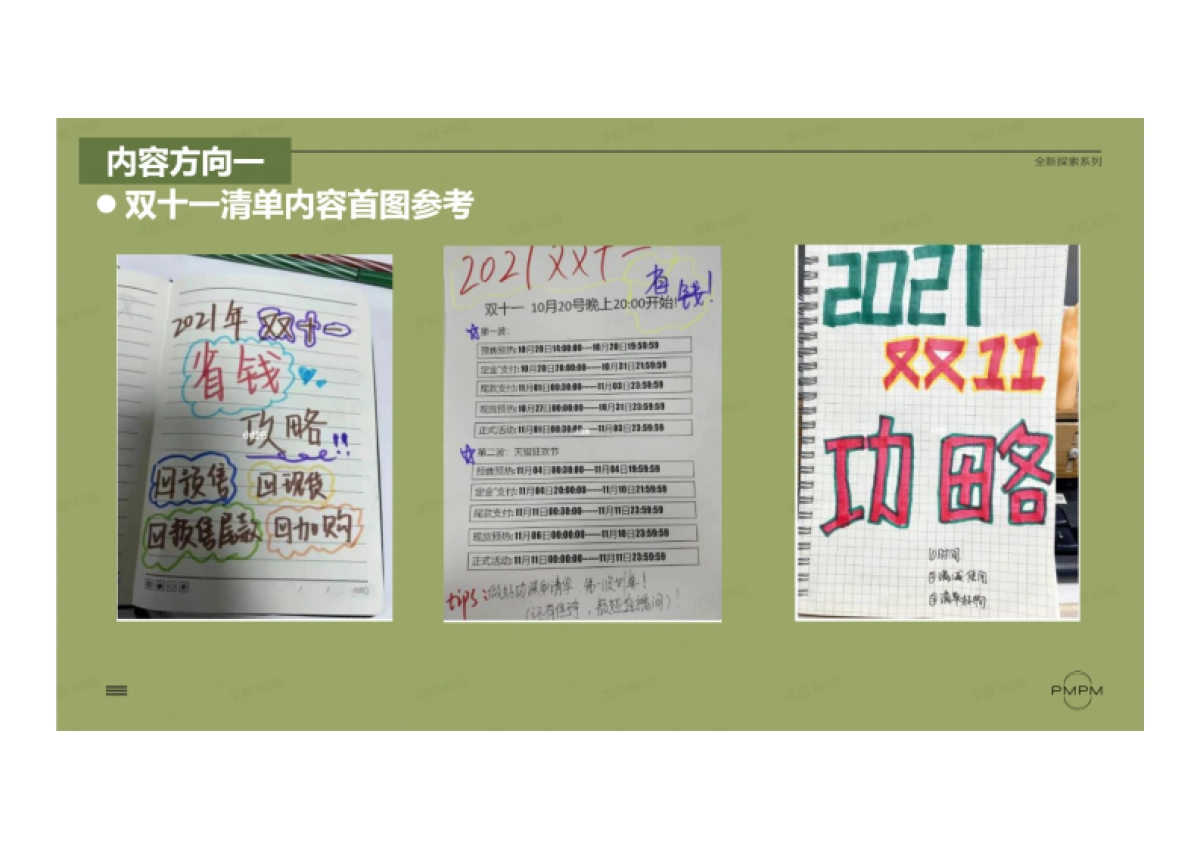 内容方向一
全新探索系列
双十一清单内容首图参考
2021年双十一
省钱
攻略!!
回预售 回现货
回预售尾款 回加购
2021双十一
省钱!
双十一 10月20号晚上20:00开始!
第一波:
预售预热:10月20日14:00:00----10月20日19:59:59
定金*支付:10月20日20:00:00----10月31日21:59:59
尾款支付:11月01日00:30:00----11月03日23:59:59
现货预热:10月27日00:00:00----10月31日23:59:59
正式活动:11月01日00:30:00----11月03日23:59:59
第二波:天猫狂欢节
预售预热:11月04日00:30:00----11月04日19:59:59
定金*支付:11月04日20:00:00----11月10日21:59:59
尾款支付:11月11日00:30:00----11月11日23:59:59
现货预热:11月06日00:00:00----11月10日23:59:59
正式活动:11月11日00:00:00----11月11日23:59:59
tips:
2021
双11
功略
①时间
②满减使用
③清单
PMPM